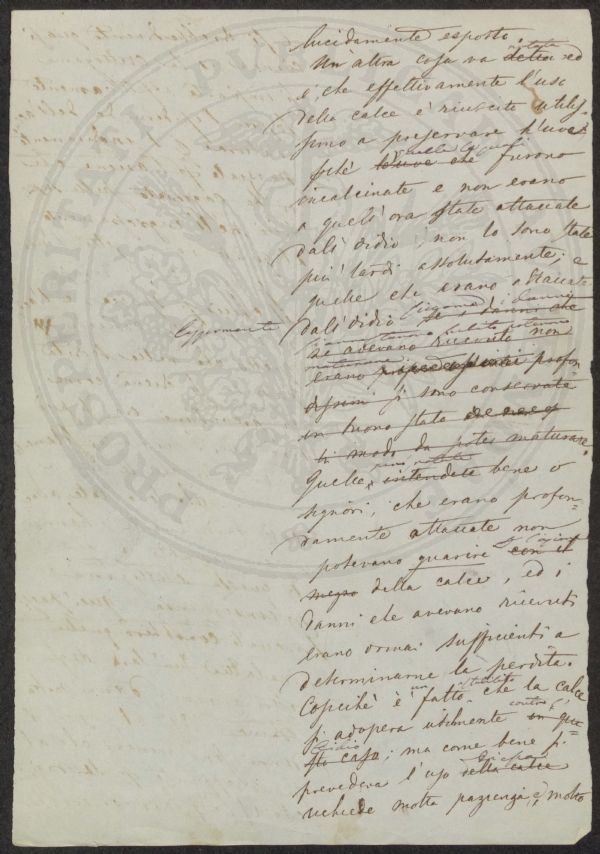 lucidamente esposto.
Un altra cosa va detta notata ed
è, che effettivamente l'uso
della calce è riuscito utilis-
simo a preservare l'uva
poichè l'uva che quelle le quali furono
incalcinate e non erano
a quell'ora state attaccate
dall'oidio, non lo sono state
più tardi assolutamente; e
quelle che erano attaccate
dall'oidio leggermente se i danni che
ricevuto non
erano profon-
dissimi si sono conservate
in buono stato
di modo da poter maturare.
Quelle, intendete bene o
signori, che erano profon-
damente attaccate non
potevano guarire con il
mezzo della calce, ed i
danni che avevano ricevuti
erano ormai sufficienti a
determinarne la perdita.
Cosichè è un fatto stabilito che la calce
si adopera utilmente contro l' in que-
sto caso oidio; ma come bene si
prevedeva l'uso della calce
richiede molta pazienza, è molto
PROSPERITATI PUBLICAE